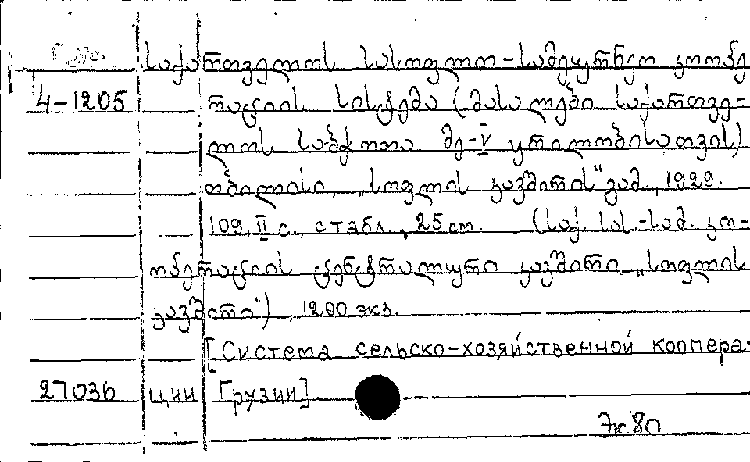 საქართველოს სასოფლო-სამეურნეო კოოპე
4-1205 რაციის სისტემა (მასალები საქართვე-
ლოს საბჭოთა მე-V ყრილობისათვის)
თბილისი, „სოფლის კავშირის" გამ., 1929.
109, II с., с табл., 25 см. (საქ. სას.-სამ. კო-
ოპერაციის ცენტრალური კავშირი „სოფლის
კავშირი") 1200 экз.
[Система сельско-хозяйственной коопера-
27036 ции Грузии]
Эк.80